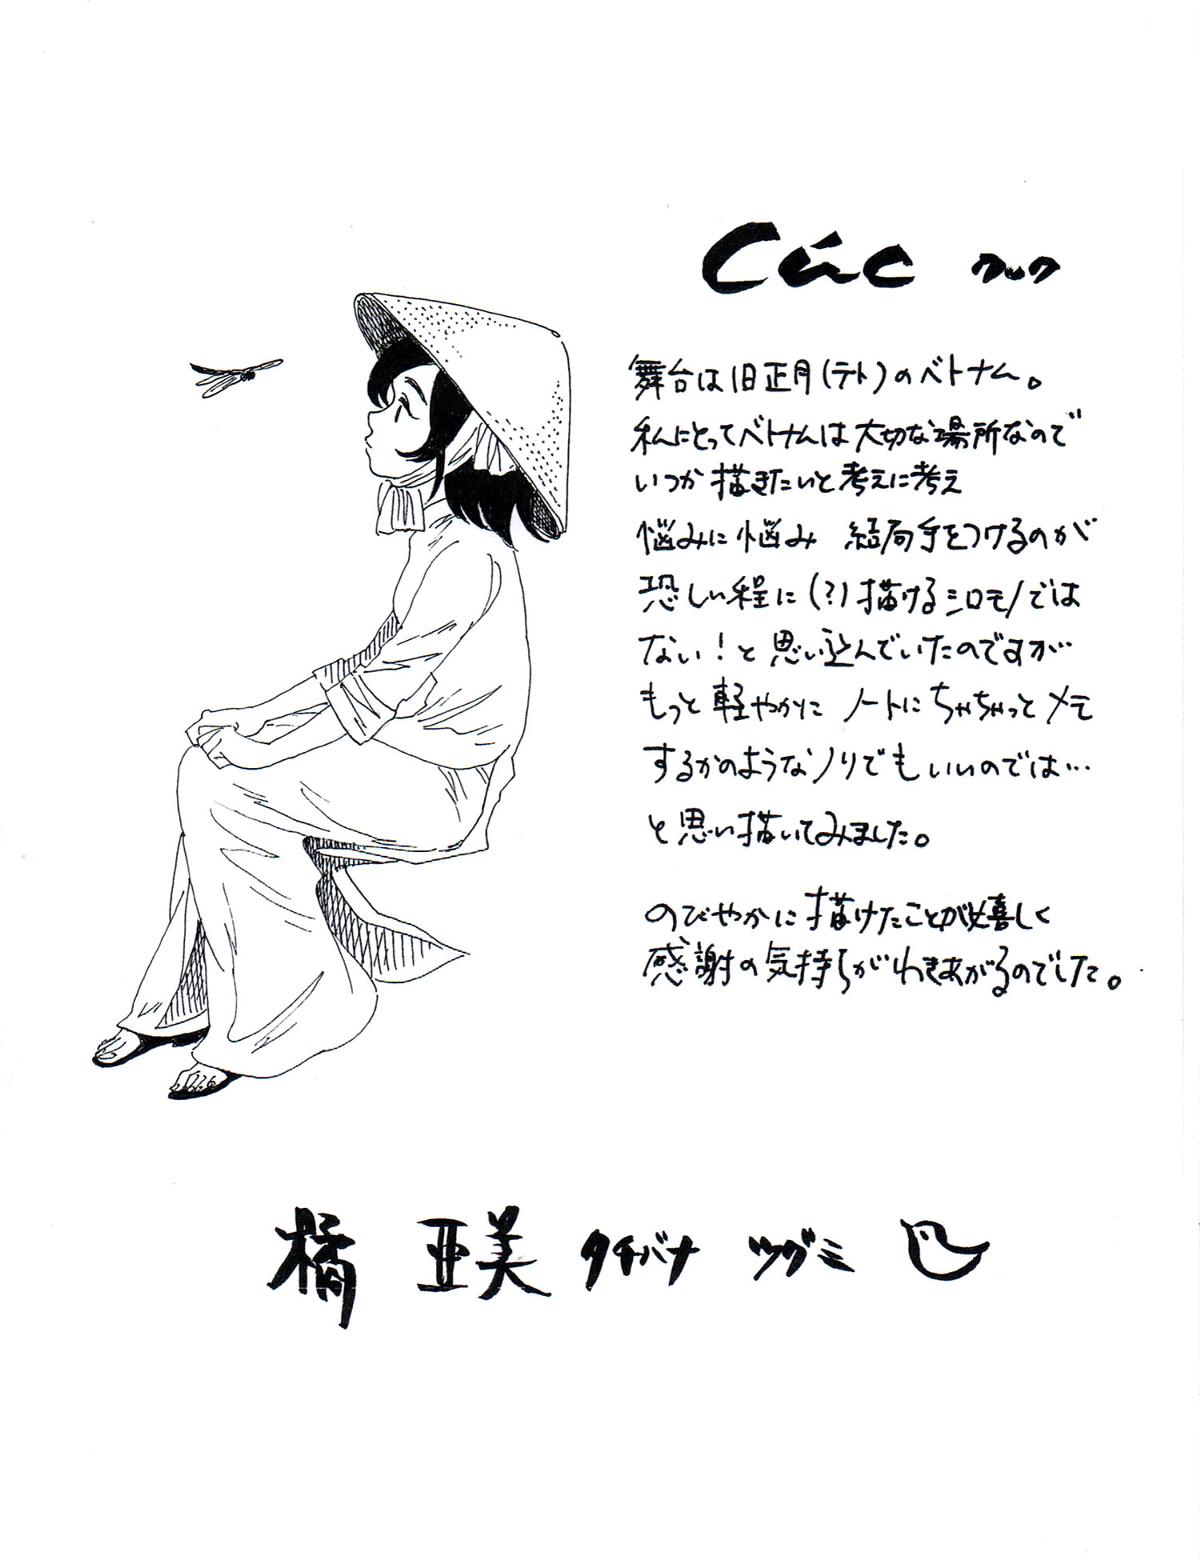 Cúc クック
舞台は旧正月(テト)のベトナム。
私にとってベトナムは大切な場所なので
いつか描きたいと考えに考え
悩みに悩み 結局手をつけるのが
恐しい程に(?)描けるシロモノでは
ない!と思い込んでいたのですが…
もっと軽やかに ノートにちゃちゃっとメモ
するかのようなノリでもいいのでは…
と思い描いてみました。
のびやかに描けたことが嬉しく
感謝の気持ちがわきあがるのでした。
橘 亜美 タチバナ ツグミ